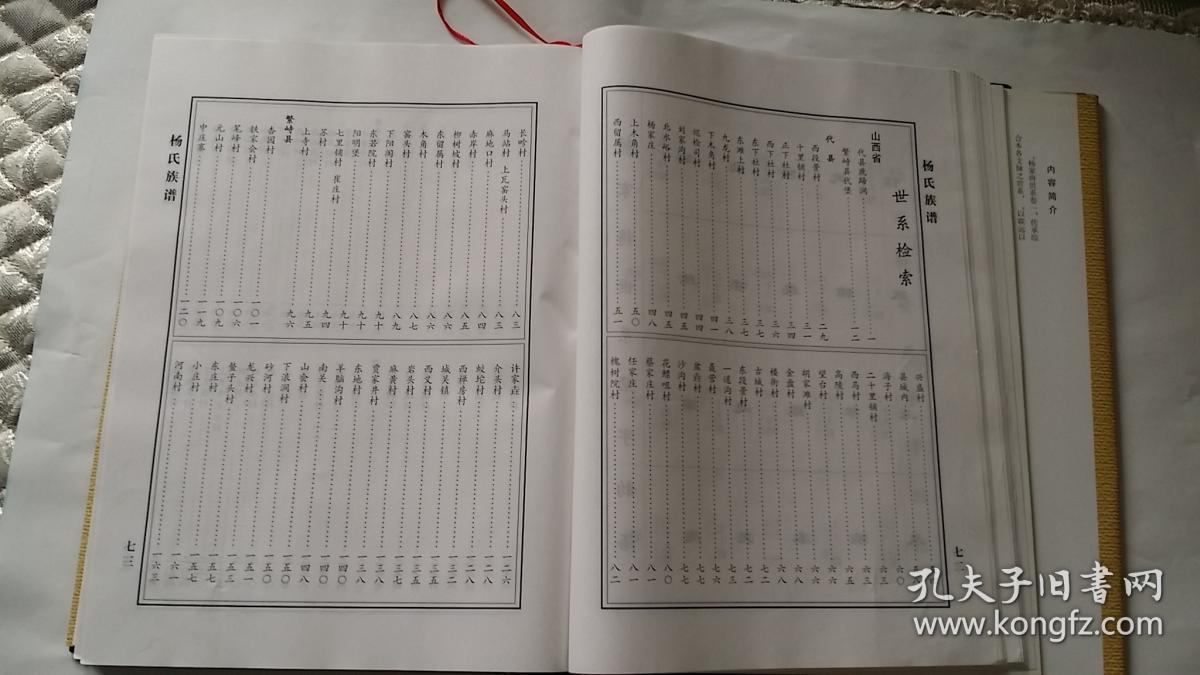 内容简介
杨氏族谱
世系检索
山西省
代县鹿蹄涧……一
繁峙县代堡……一二
代县
西段景村……二九
十里铺村……三一
正下社村……三四
西下社村……三六
东下社村……三七
东滩上村……三七
九龙村……三八
下木角村……四一
峨检司村……四四
刘家沟村……四五
北水峪村……四五
杨家庄……四八
上木角村……五〇
西留属村……五一
兴盛村……六〇
县城内……六三
海子村……六三
二十里铺村……六四
西马村……六五
高陵村……六六
望台村……六六
胡家滩村……六六
金盘村……六八
楼街村……七一
古城村……七二
东段景村……七三
一道沟村……七六
聂营村……七六
盆窑村……七七
沙沟村……七七
花螺咀村……八〇
蔡家庄村……八一
任家庄……八一
槐树院村……八二
七二
杨氏族谱
长吟村……八三
马站村 上瓦窑头村……八三
麻地口村……八四
赤岸村……八五
柳树坡村……八六
东留属村……八六
木角村……八六
窑头村……八七
下阳阁村……八九
东若院村……九十
阳明堡……九十
七里铺村 崔庄村……九十
苏村……九四
上寺村……九五
繁峙县……九六
杏园村……一〇一
铁家会村……一〇六
笔峰村……一〇六
元山村……一〇九
中庄寨……一一九
一二〇
许家庄……一二六
介头村……一二八
蚊坨村……一二八
西禅房村……一三二
城关镇……一三五
西义村……一三五
岩头村……一三七
麻黄村……一三七
贾家井村……一三八
东地村……一三八
羊脑沟村……一四〇
南关……一四〇
山会村……一四八
下浪涧村……一五〇
砂河村……一五〇
龙兴村……一五一
鳌子头村……一五三
东庄村……一五七
小庄村……一五七
河南村……一六一
一六三
七三
孔夫子旧书网
www.kongfz.com